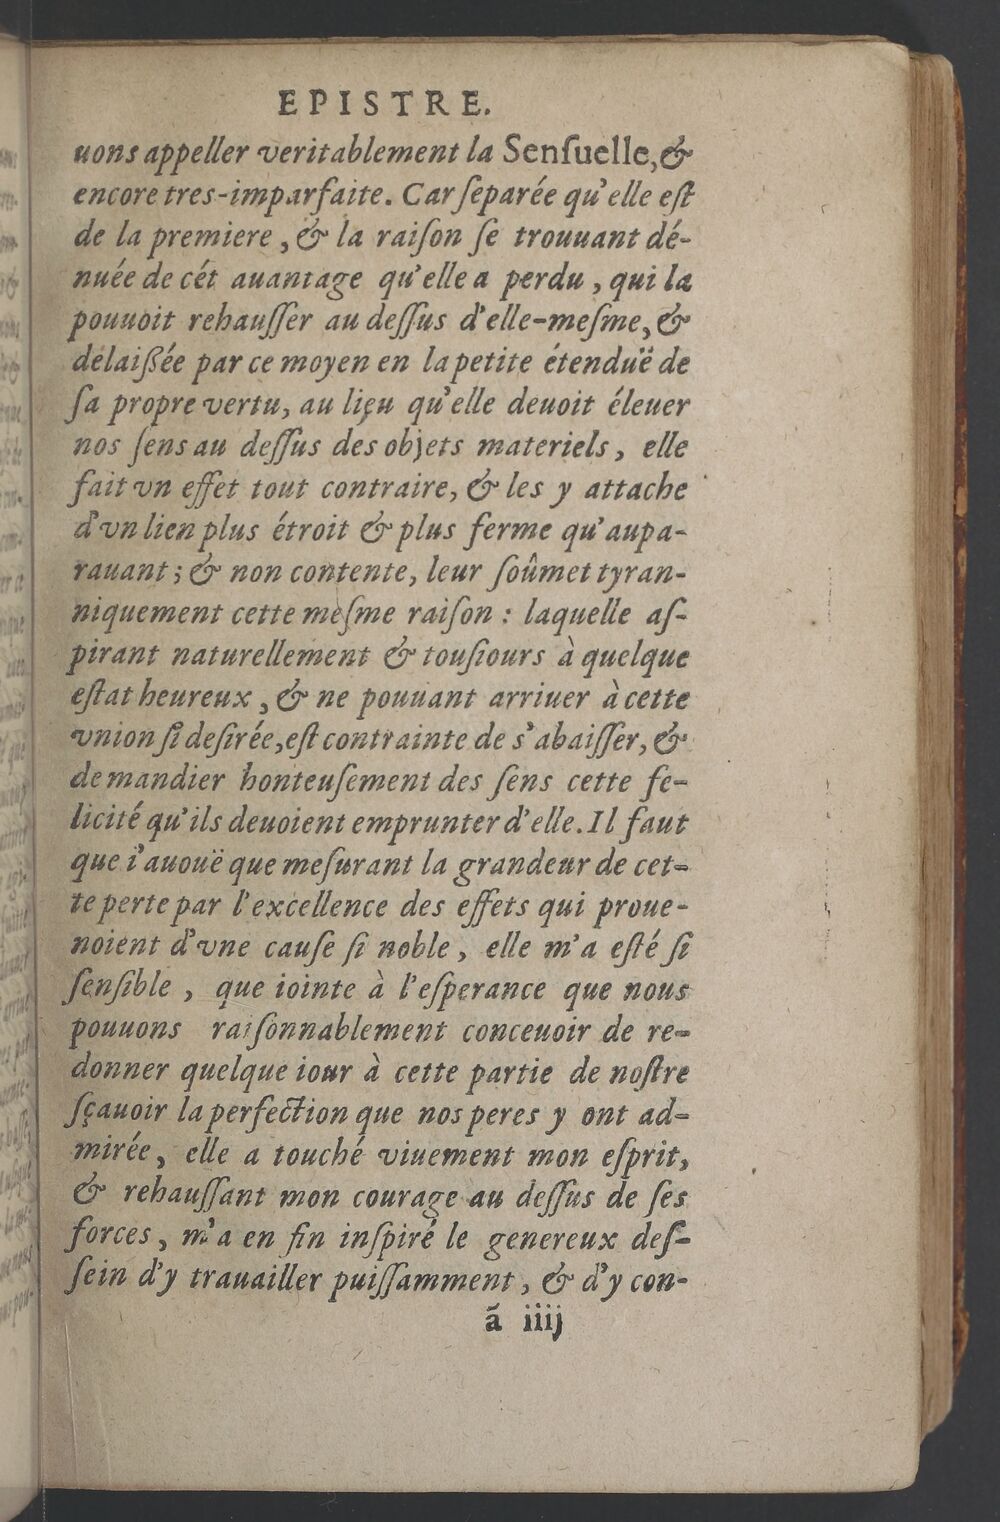 EPISTRE.
uons appeller veritablement la Senſuelle, &
encore tres-imparfaite. Car ſeparée qu'elle eſt
de la premiere, & la raiſon ſe trouuant dé-
nuée de cét auantage qu'elle a perdu, qui la
pouuoit rehauſſer au deſſus d'elle-meſme, &
délaißée par ce moyen en la petite étenduë de
ſa propre vertu, au lieu qu'elle deuoit éleuer
nos ſens au deſſus des objets materiels, elle
fait vn effet tout contraire, & les y attache
d'vn lien plus étroit & plus ferme qu'aupa-
rauant; & non contente, leur ſoûmet tyran-
niquement cette meſme raiſon : laquelle aſ-
pirant naturellement & touſiours à quelque
eſtat heureux, & ne pouuant arriuer à cette
vnion ſi deſirée, eſt contrainte de s'abaiſſer, &
de mandier honteuſement des ſens cette fe-
licité qu'ils deuoient emprunter d'elle. Il faut
que i'auouë que meſurant la grandeur de cet-
te perte par l'excellence des effets qui proue-
noient d'vne cauſe ſi noble, elle m'a eſté ſi
ſenſible, que iointe à l'eſperance que nous
pouuons raiſonnablement conceuoir de re-
donner quelque iour à cette partie de noſtre
ſçauoir la perfection que nos peres y ont ad-
mirée, elle a touché viuement mon eſprit,
& rehauſſant mon courage au deſſus de ſes
forces, m'a en fin inſpiré le genereux deſ-
ſein d'y trauailler puiſſamment, & d'y con-
ã iiij